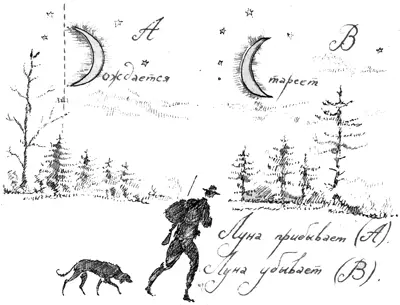 А В
ождается тареет
Луна прибывает (А).
Луна убывает (В).